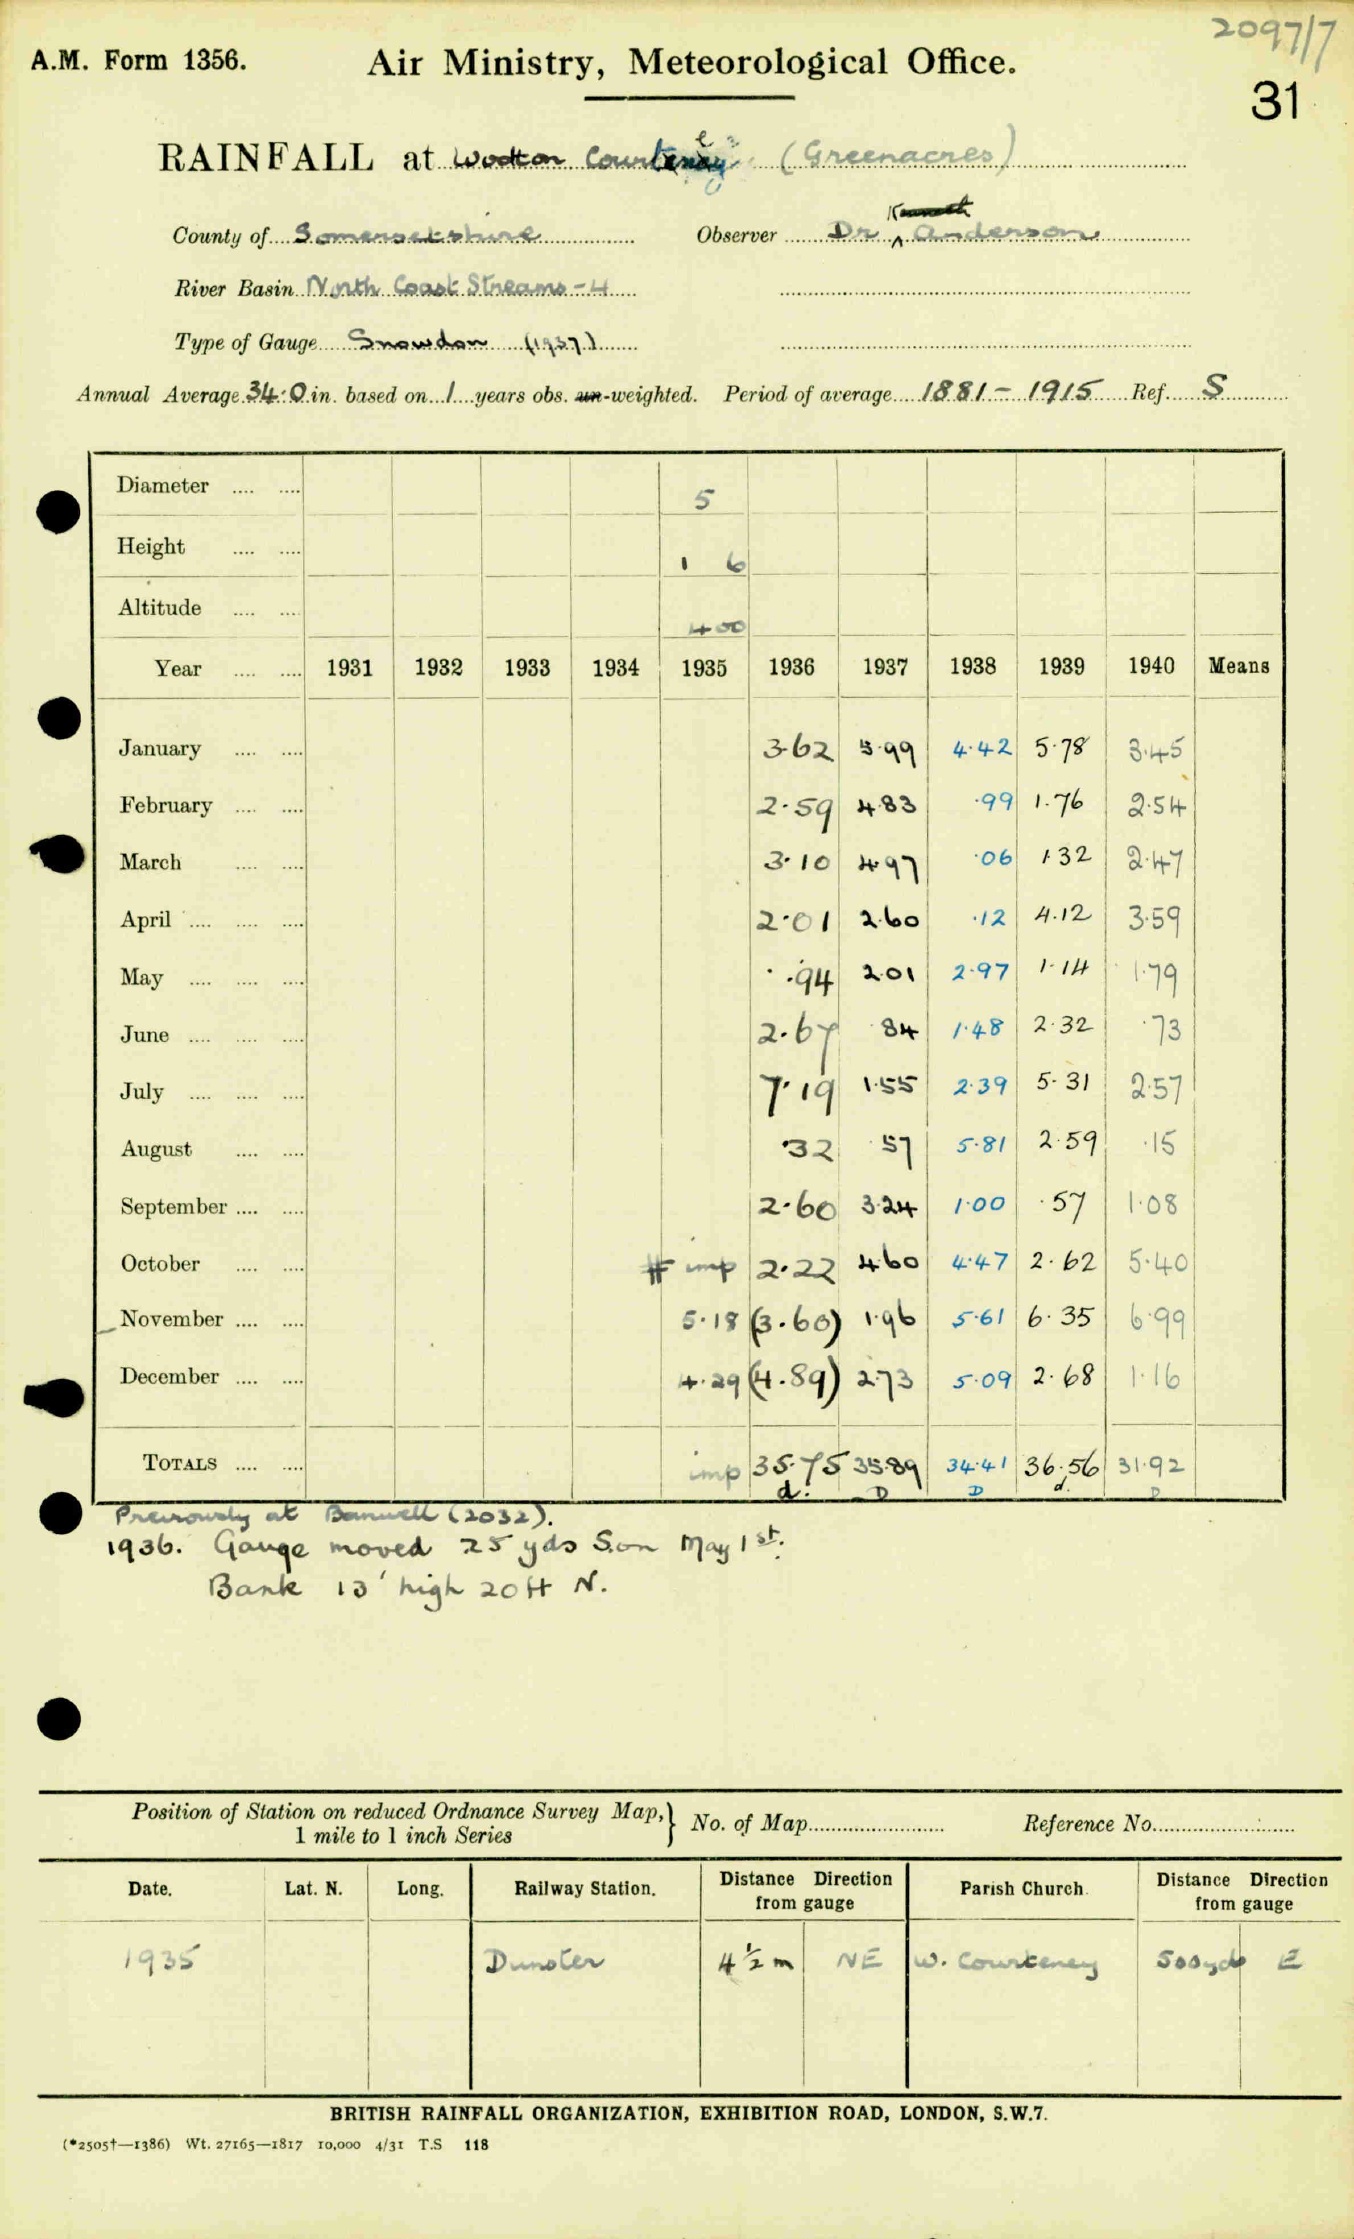 2097/7
A.M. Form 1356. Air Ministry, Meteorological Office.
31
RAINFALL at Wootton Courtenay (Greenacres)
County of Somersetshire Observer Dr Kenneth Anderson
River Basin North Coast Streams - 4
Type of Gauge Snowdon (1937)
Annual Average 34.0 in. based on 1 years obs. un-weighted. Period of average 1881 - 1915 Ref. S
Diameter .... .... 5
Height .... .... 1 6
Altitude .... .... 400
Year .... .... 1931 1932 1933 1934 1935 1936 1937 1938 1939 1940 Means
January .... .... 3.62 5.99 4.42 5.78 3.45
February .... .... 2.59 4.83 .99 1.76 2.54
March .... .... 3.10 4.97 .06 1.32 2.47
April .... .... .... 2.01 2.60 .12 4.12 3.59
May .... .... .... .94 2.01 2.97 1.14 1.79
June .... .... .... 2.67 84 1.48 2.32 .73
July .... .... .... 7.19 1.55 2.39 5.31 2.57
August .... .... .32 57 5.81 2.59 .15
September .... .... 2.60 3.24 1.00 .57 1.08
October .... .... # imp 2.22 4.60 4.47 2.62 5.40
November .... .... 5.18 (3.60) 1.96 5.61 6.35 6.99
December .... .... 4.29 (4.89) 2.73 5.09 2.68 1.16
TOTALS .... .... imp 35.75 35.89 34.41 36.56 31.92
d. D D d. D
Previously at Banwell (2032).
1936. Gauge moved 25 yds S. on May 1st.
Bank 13' high 20 ft N.
Position of Station on reduced Ordnance Survey Map, } No. of Map Reference No.
1 mile to 1 inch Series
Date. Lat. N. Long. Railway Station. Distance Direction from gauge Parish Church Distance Direction from gauge
1935 Dunster 4½ m NE W. Courteney 500 yds E
BRITISH RAINFALL ORGANIZATION, EXHIBITION ROAD, LONDON, S.W.7.
(*2505†—1386) Wt. 27165—1817 10,000 4/31 T.S 118